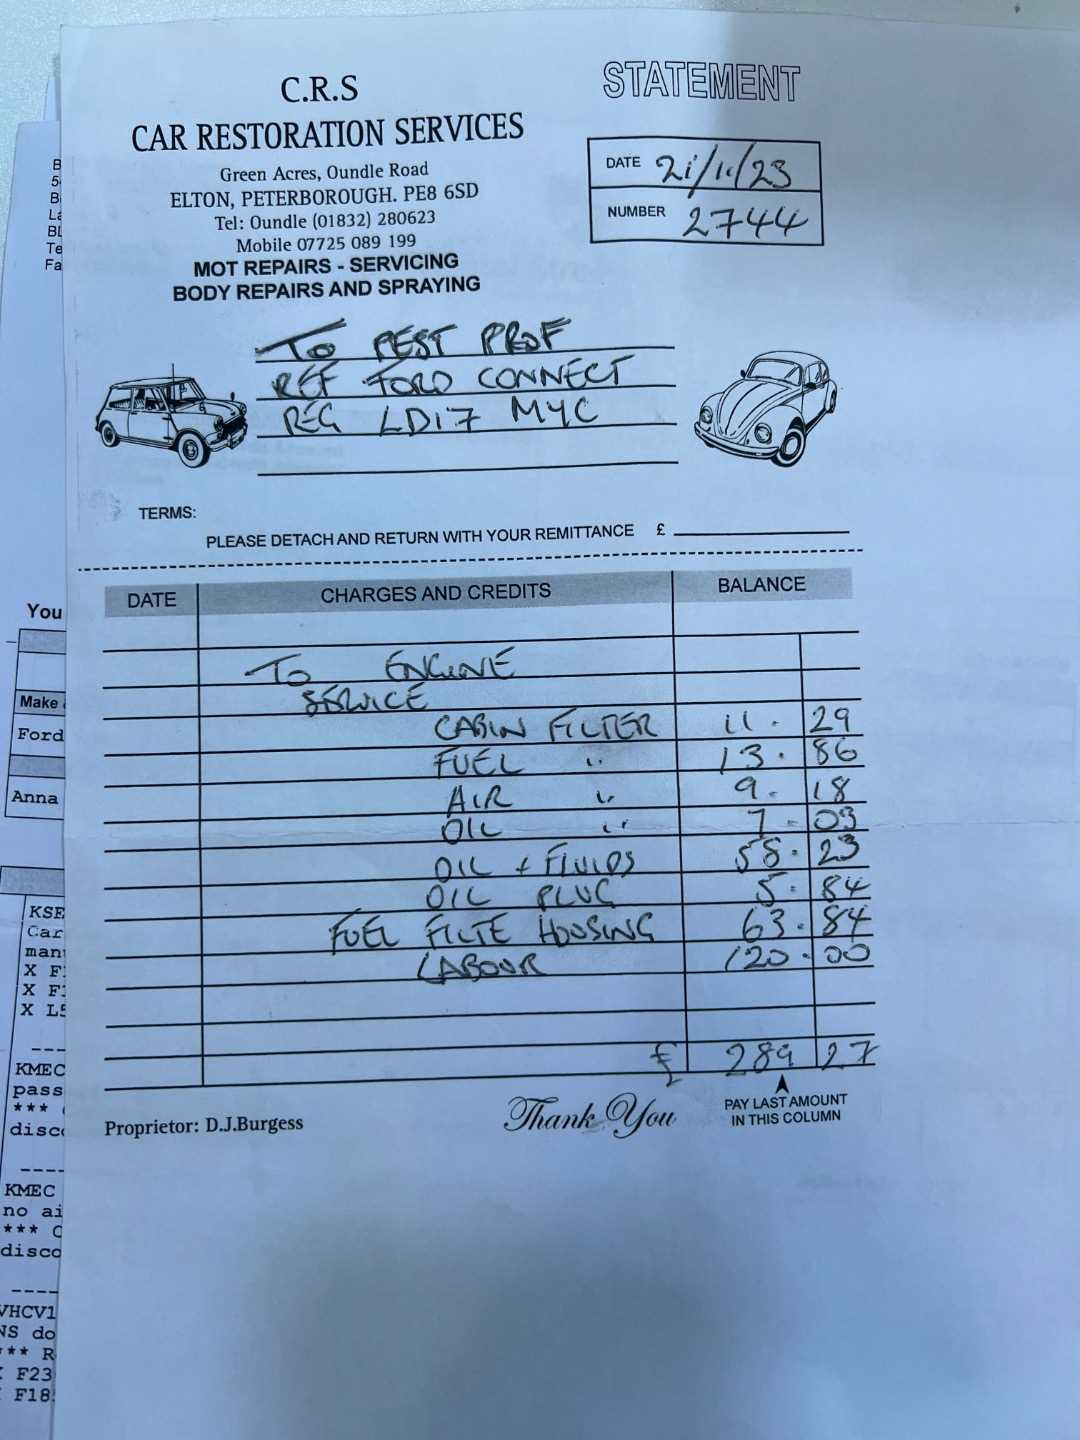 C.R.S
CAR RESTORATION SERVICES
Green Acres, Oundle Road
ELTON, PETERBOROUGH. PE8 6SD
Tel: Oundle (01832) 280623
Mobile 07725 089 199
MOT REPAIRS - SERVICING
BODY REPAIRS AND SPRAYING
STATEMENT
DATE 21/11/23
NUMBER 2744
TO PEST PROF
REF FORD CONNECT
REG LD17 MYC
TERMS:
PLEASE DETACH AND RETURN WITH YOUR REMITTANCE £
DATE CHARGES AND CREDITS BALANCE
TO ENGINE
SERVICE
CABIN FILTER 11. 29
FUEL " 13. 86
AIR " 9. 18
OIL " 7 - 03
OIL + FLUIDS 58. 23
OIL PLUG 5. 84
FUEL FILTE HOUSING 63. 84
LABOUR 120. 00
£ 289 27
Proprietor: D.J.Burgess
Thank You
PAY LAST AMOUNT
IN THIS COLUMN
You
Make
Ford
Anna
KSE
Car
man
X F
X F
X L5
KMEC
pass
***
disco
KMEC
no ai
*** C
disco
VHCV1
NS do
*** R
X F23
F18